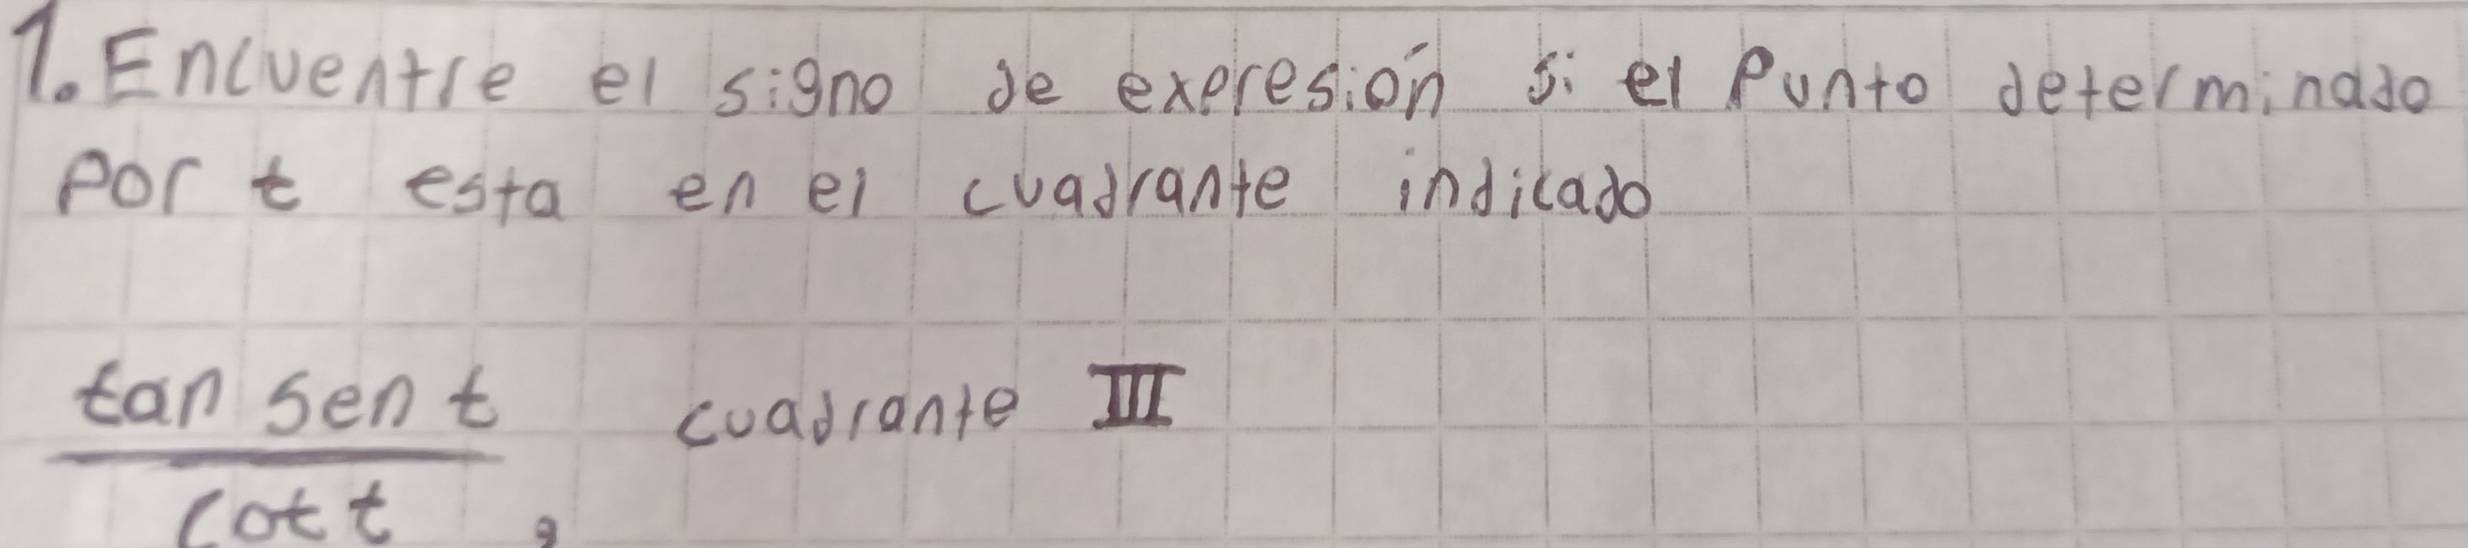 1. Encuentre el signo de expresión si el Punto determinado
Por t esta en el cuadrante indicado
tan sen t cuadrante III
cot t ,